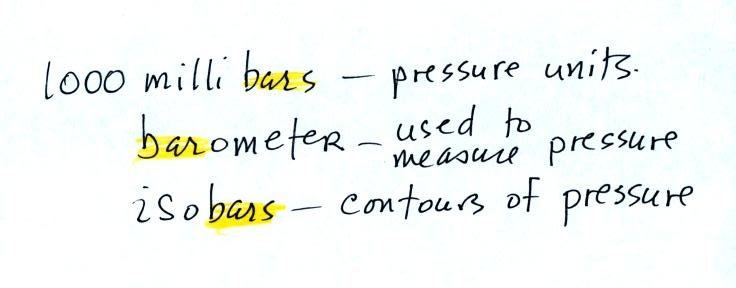 1000 milli bars — pressure units.
barometer — used to measure pressure
isobars — contours of pressure